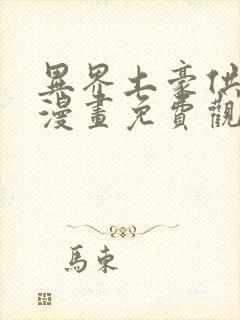 異界土豪供
漫畫免費觀
馬東